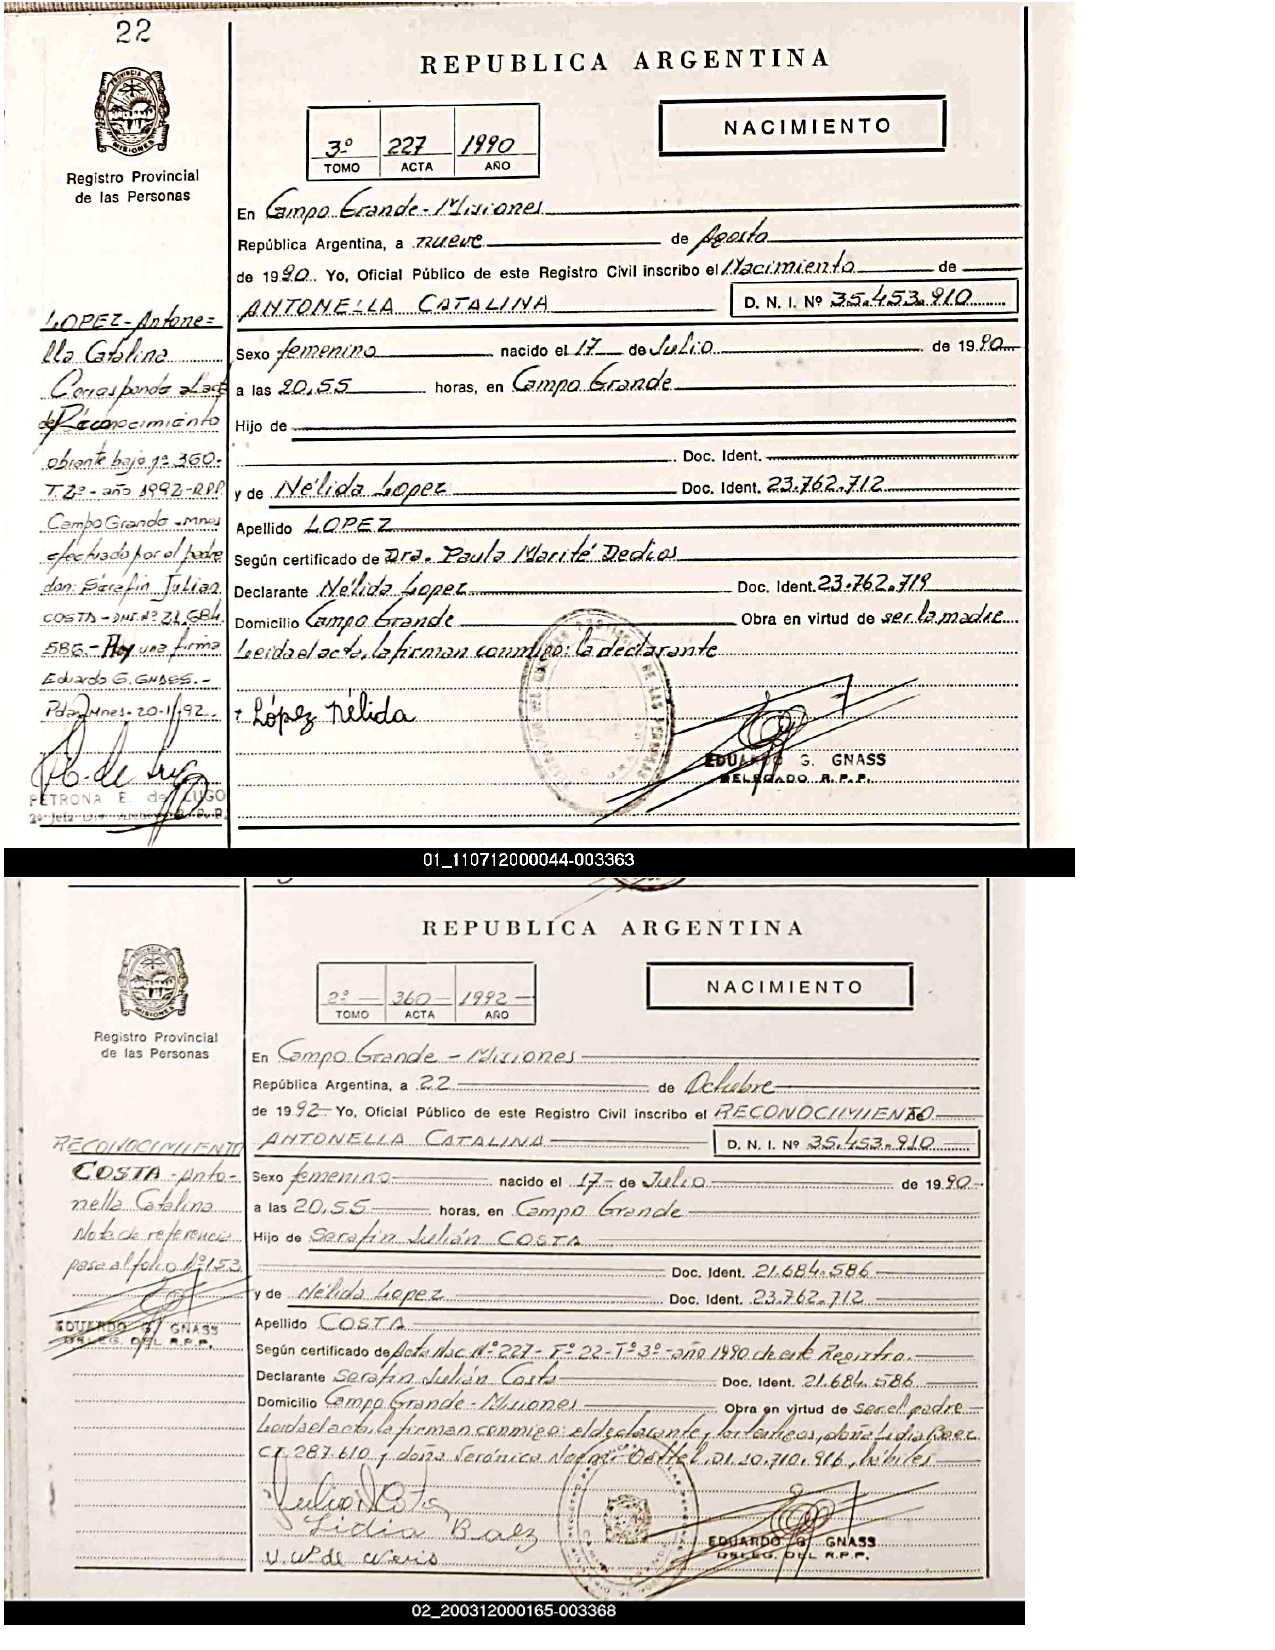 22
REPUBLICA ARGENTINA
PROVINCIA DE MISIONES
3º 227 1990
TOMO ACTA AÑO
NACIMIENTO
Registro Provincial
de las Personas
En Campo Grande - Misiones
República Argentina, a nueve de Agosto
de 1990. Yo, Oficial Público de este Registro Civil inscribo el Nacimiento de
ANTONELLA CATALINA D. N. I. Nº 35.453.910
Sexo femenino nacido el 17 de Julio de 1990
a las 20,55 horas, en Campo Grande
Hijo de
Doc. Ident.
y de Nélida Lopez Doc. Ident. 23.762.712
Apellido LOPEZ
Según certificado de Dra. Paula Marité Dedios
Declarante Nélida Lopez Doc. Ident. 23.762.719
Domicilio Campo Grande Obra en virtud de ser la madre
Leida el acta, la firman conmigo: la declarante
López Nélida
EDUARDO G. GNASS
DELEGADO R.P.P.
LOPEZ - Antone=
lla Catalina
Corresponde al acta
de Reconocimiento
obrante bajo nº 360-
T. 2º - año 1992 - RPP
Campo Grande - Mnes
efectuado por el padre
don: Serafín Julian
COSTA - DNI. Nº 21.684.
586.- Hay una firma
Eduardo G. GNASS.-
Pdas, Mnes. 20-11-92.
PETRONA E. de LUGO
01_110712000044-003363
REPUBLICA ARGENTINA
MISIONES
2º 360 1992
TOMO ACTA AÑO
NACIMIENTO
Registro Provincial
de las Personas
En Campo Grande - Misiones
República Argentina, a 22 de Octubre
de 1992 Yo, Oficial Público de este Registro Civil inscribo el RECONOCIMIENTO de
ANTONELLA CATALINA D. N. I. Nº 35.453.910
Sexo femenino nacido el 17 de Julio de 1990
a las 20,55 horas, en Campo Grande
Hijo de Serafín Julián COSTA
Doc. Ident. 21.684.586
y de Nélida Lopez Doc. Ident. 23.762.712
Apellido COSTA
Según certificado de Acta Nac. Nº 227 - Fº 22 - Tº 3º - año 1990 de este Registro.
Declarante Serafín Julián Costa Doc. Ident. 21.684.586
Domicilio Campo Grande - Misiones Obra en virtud de ser el padre
Leida el acta, la firman conmigo: el declarante, los testigos, doña Lidia Baez
C.I. 287.610 y doña Verónica Noemí D.I. 10.710.916, hábiles
Lidia Baez
EDUARDO G. GNASS
DELEG. DEL R.P.P.
RECONOCIMIENTO
COSTA - Anto-
nella Catalina
Nota de referencia
pasa al folio Nº 153
EDUARDO G. GNASS
DELEG. DEL R.P.P.
02_200312000165-003368